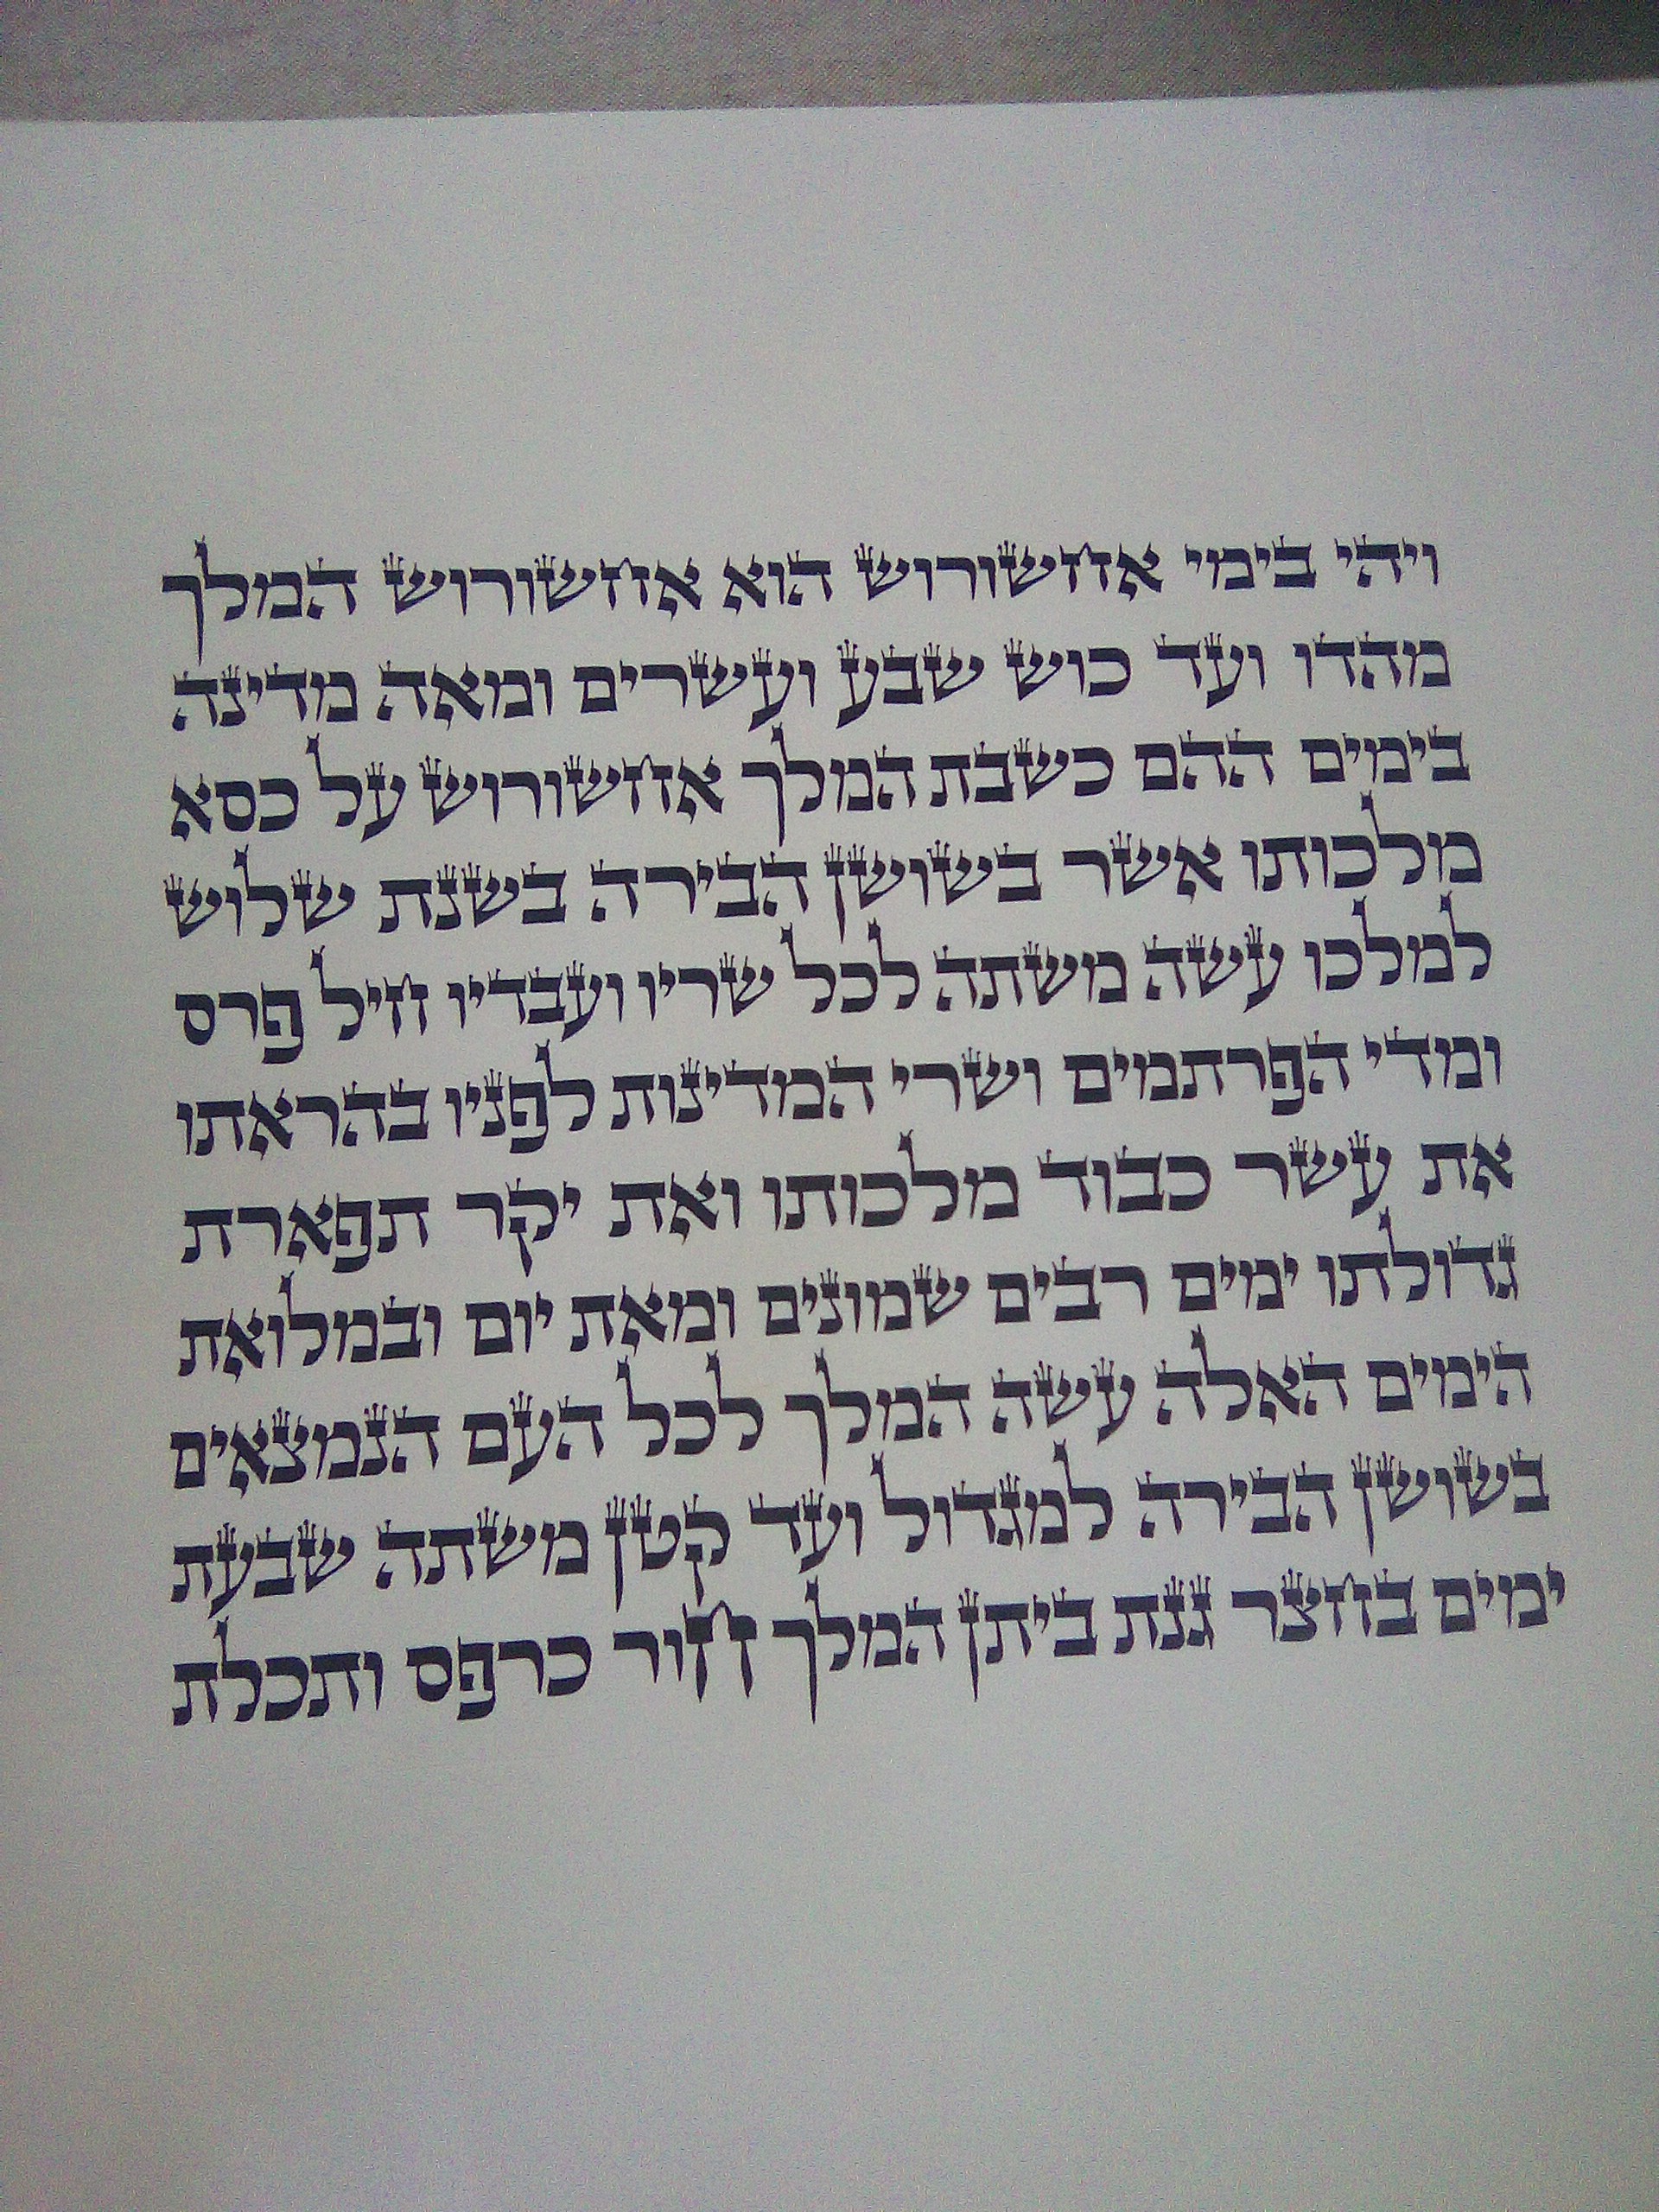 ויהי בימי אחשורוש הוא אחשורוש המלך
מהדו ועד כוש שבע ועשרים ומאה מדינה
בימים ההם כשבת המלך אחשורוש על כסא
מלכותו אשר בשושן הבירה בשנת שלוש
למלכו עשה משתה לכל שריו ועבדיו חיל פרס
ומדי הפרתמים ושרי המדינות לפניו בהראתו
את עשר כבוד מלכותו ואת יקר תפארת
גדולתו ימים רבים שמונים ומאת יום ובמלואת
הימים האלה עשה המלך לכל העם הנמצאים
בשושן הבירה למגדול ועד קטן משתה שבעת
ימים בחצר גנת ביתן המלך חור כרפס ותכלת